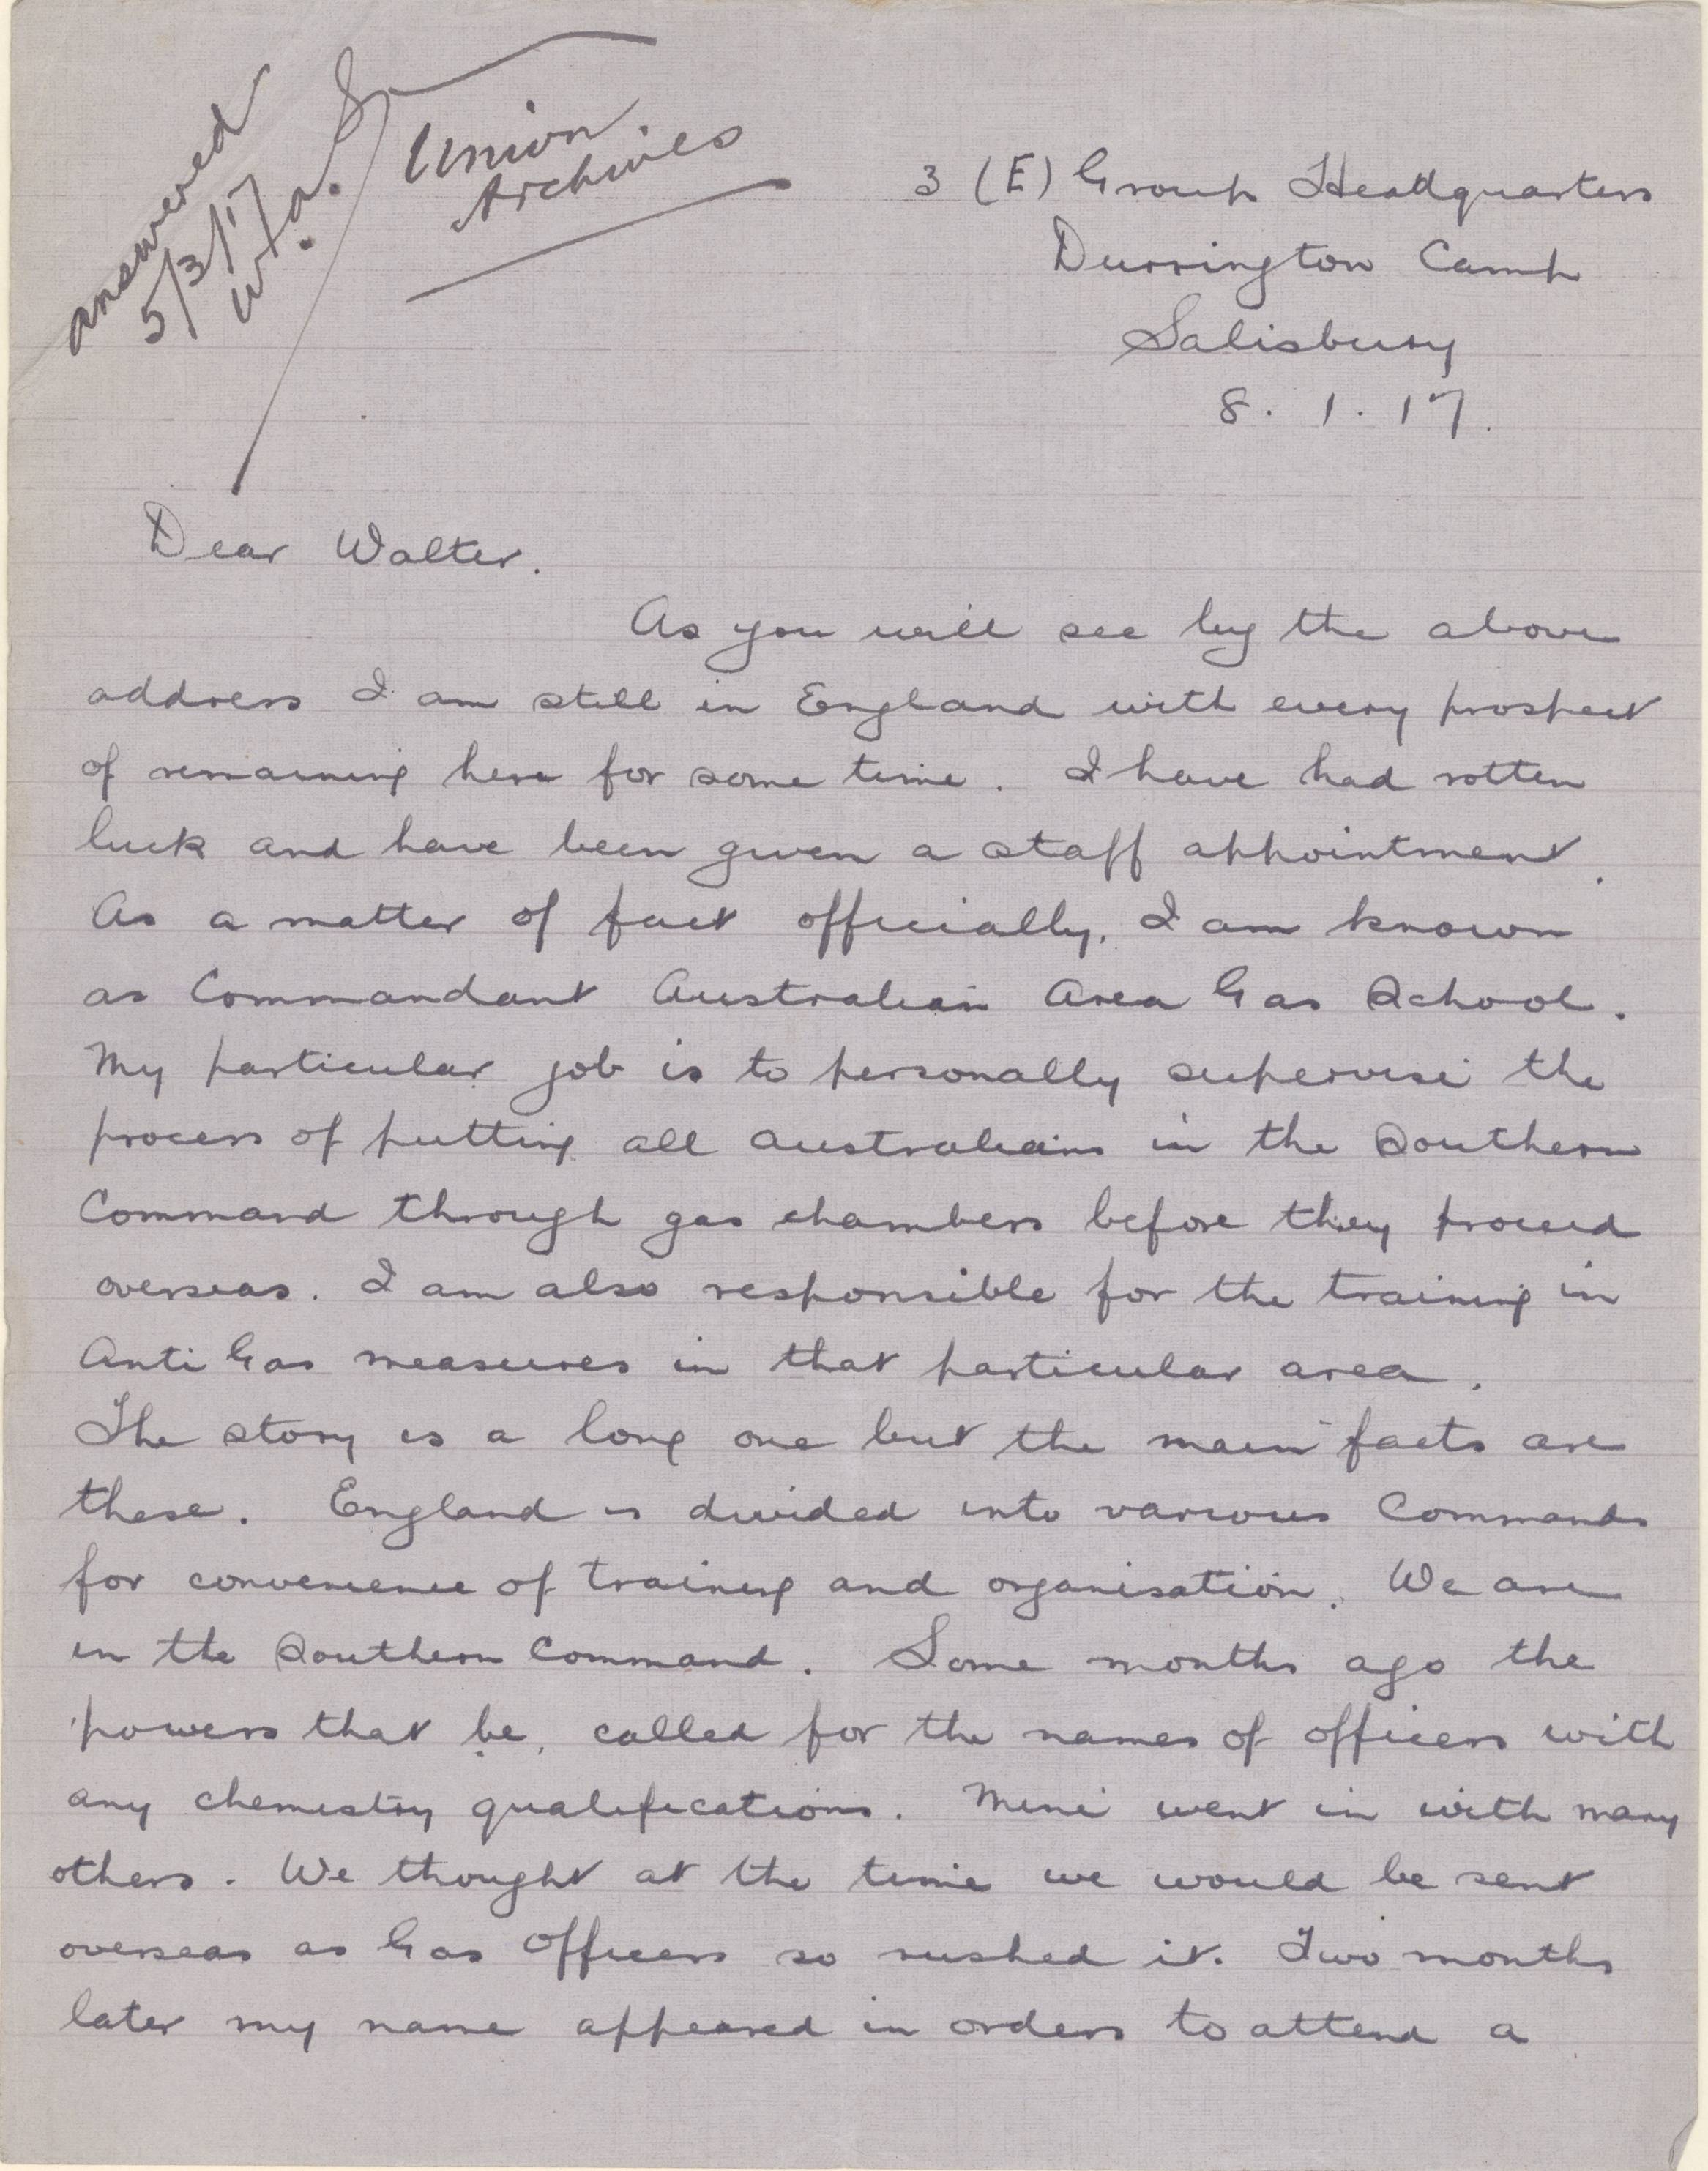 answered
5/3/17
W.A.S.
Union
Archives
3 (E) Group Headquarters
Durrington Camp
Salisbury
8. 1. 17.
Dear Walter.
As you will see by the above
address I am still in England with every prospect
of remaining here for some time. I have had rotten
luck and have been given a staff appointment.
As a matter of fact officially, I am known
as Commandant Australian Area Gas School.
My particular job is to personally supervise the
process of putting all Australians in the Southern
Command through gas chambers before they proceed
overseas. I am also responsible for the training in
Anti Gas measures in that particular area.
The story is a long one but the main facts are
these. England is divided into various Commands
for convenience of training and organisation. We are
in the Southern Command. Some months ago the
powers that be, called for the names of officers with
any chemistry qualifications. Mine went in with many
others. We thought at the time we would be sent
overseas as Gas Officers so rushed it. Two months
later my name appeared in orders to attend a